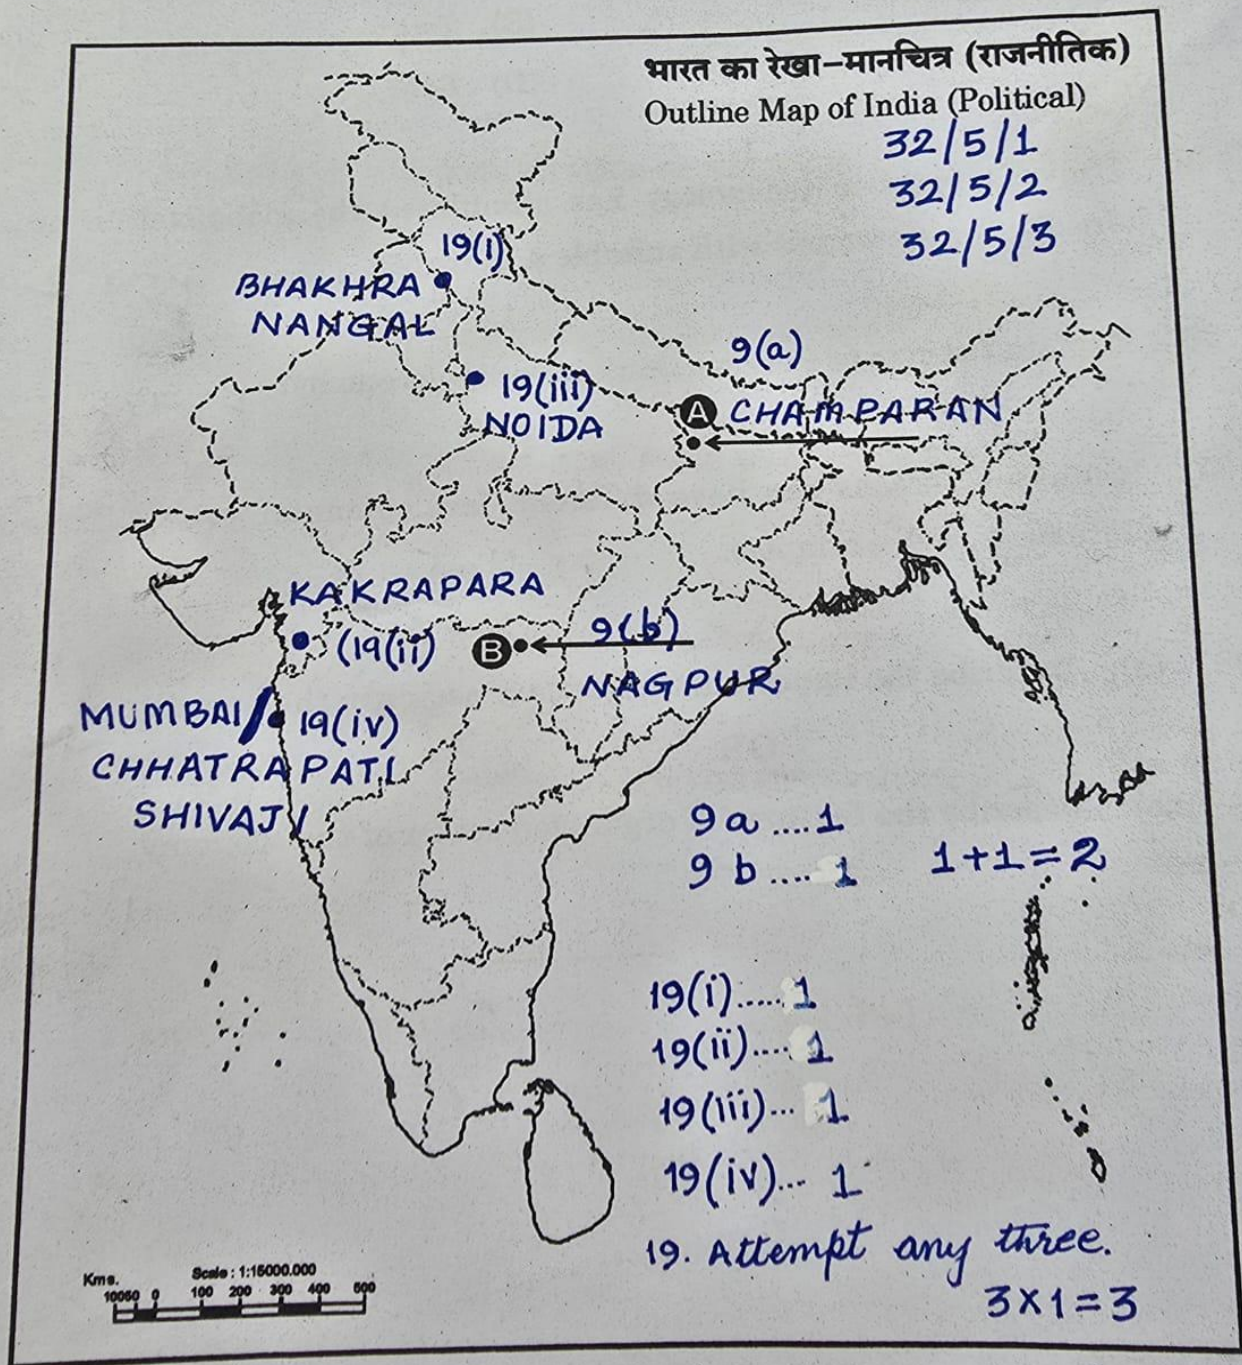 भारत का रेखा-मानचित्र (राजनीतिक)
Outline Map of India (Political)
32/5/1
32/5/2
32/5/3
19(i)
BHAKHRA
NANGAL
9(a)
19(iii)
NOIDA
A CHAMPARAN
KAKRAPARA
(19(ii)
B
9(b)
NAGPUR
MUMBAI/ 19(iv)
CHHATRAPATI
SHIVAJI
9a....1
9b....1
1+1=2
19(i).....1
19(ii)....1
19(iii)...1
19(iv)... 1
19. Attempt any three.
3×1=3
Kms.
Scale : 1:15000.000
10050 0 100 200 300 400 500